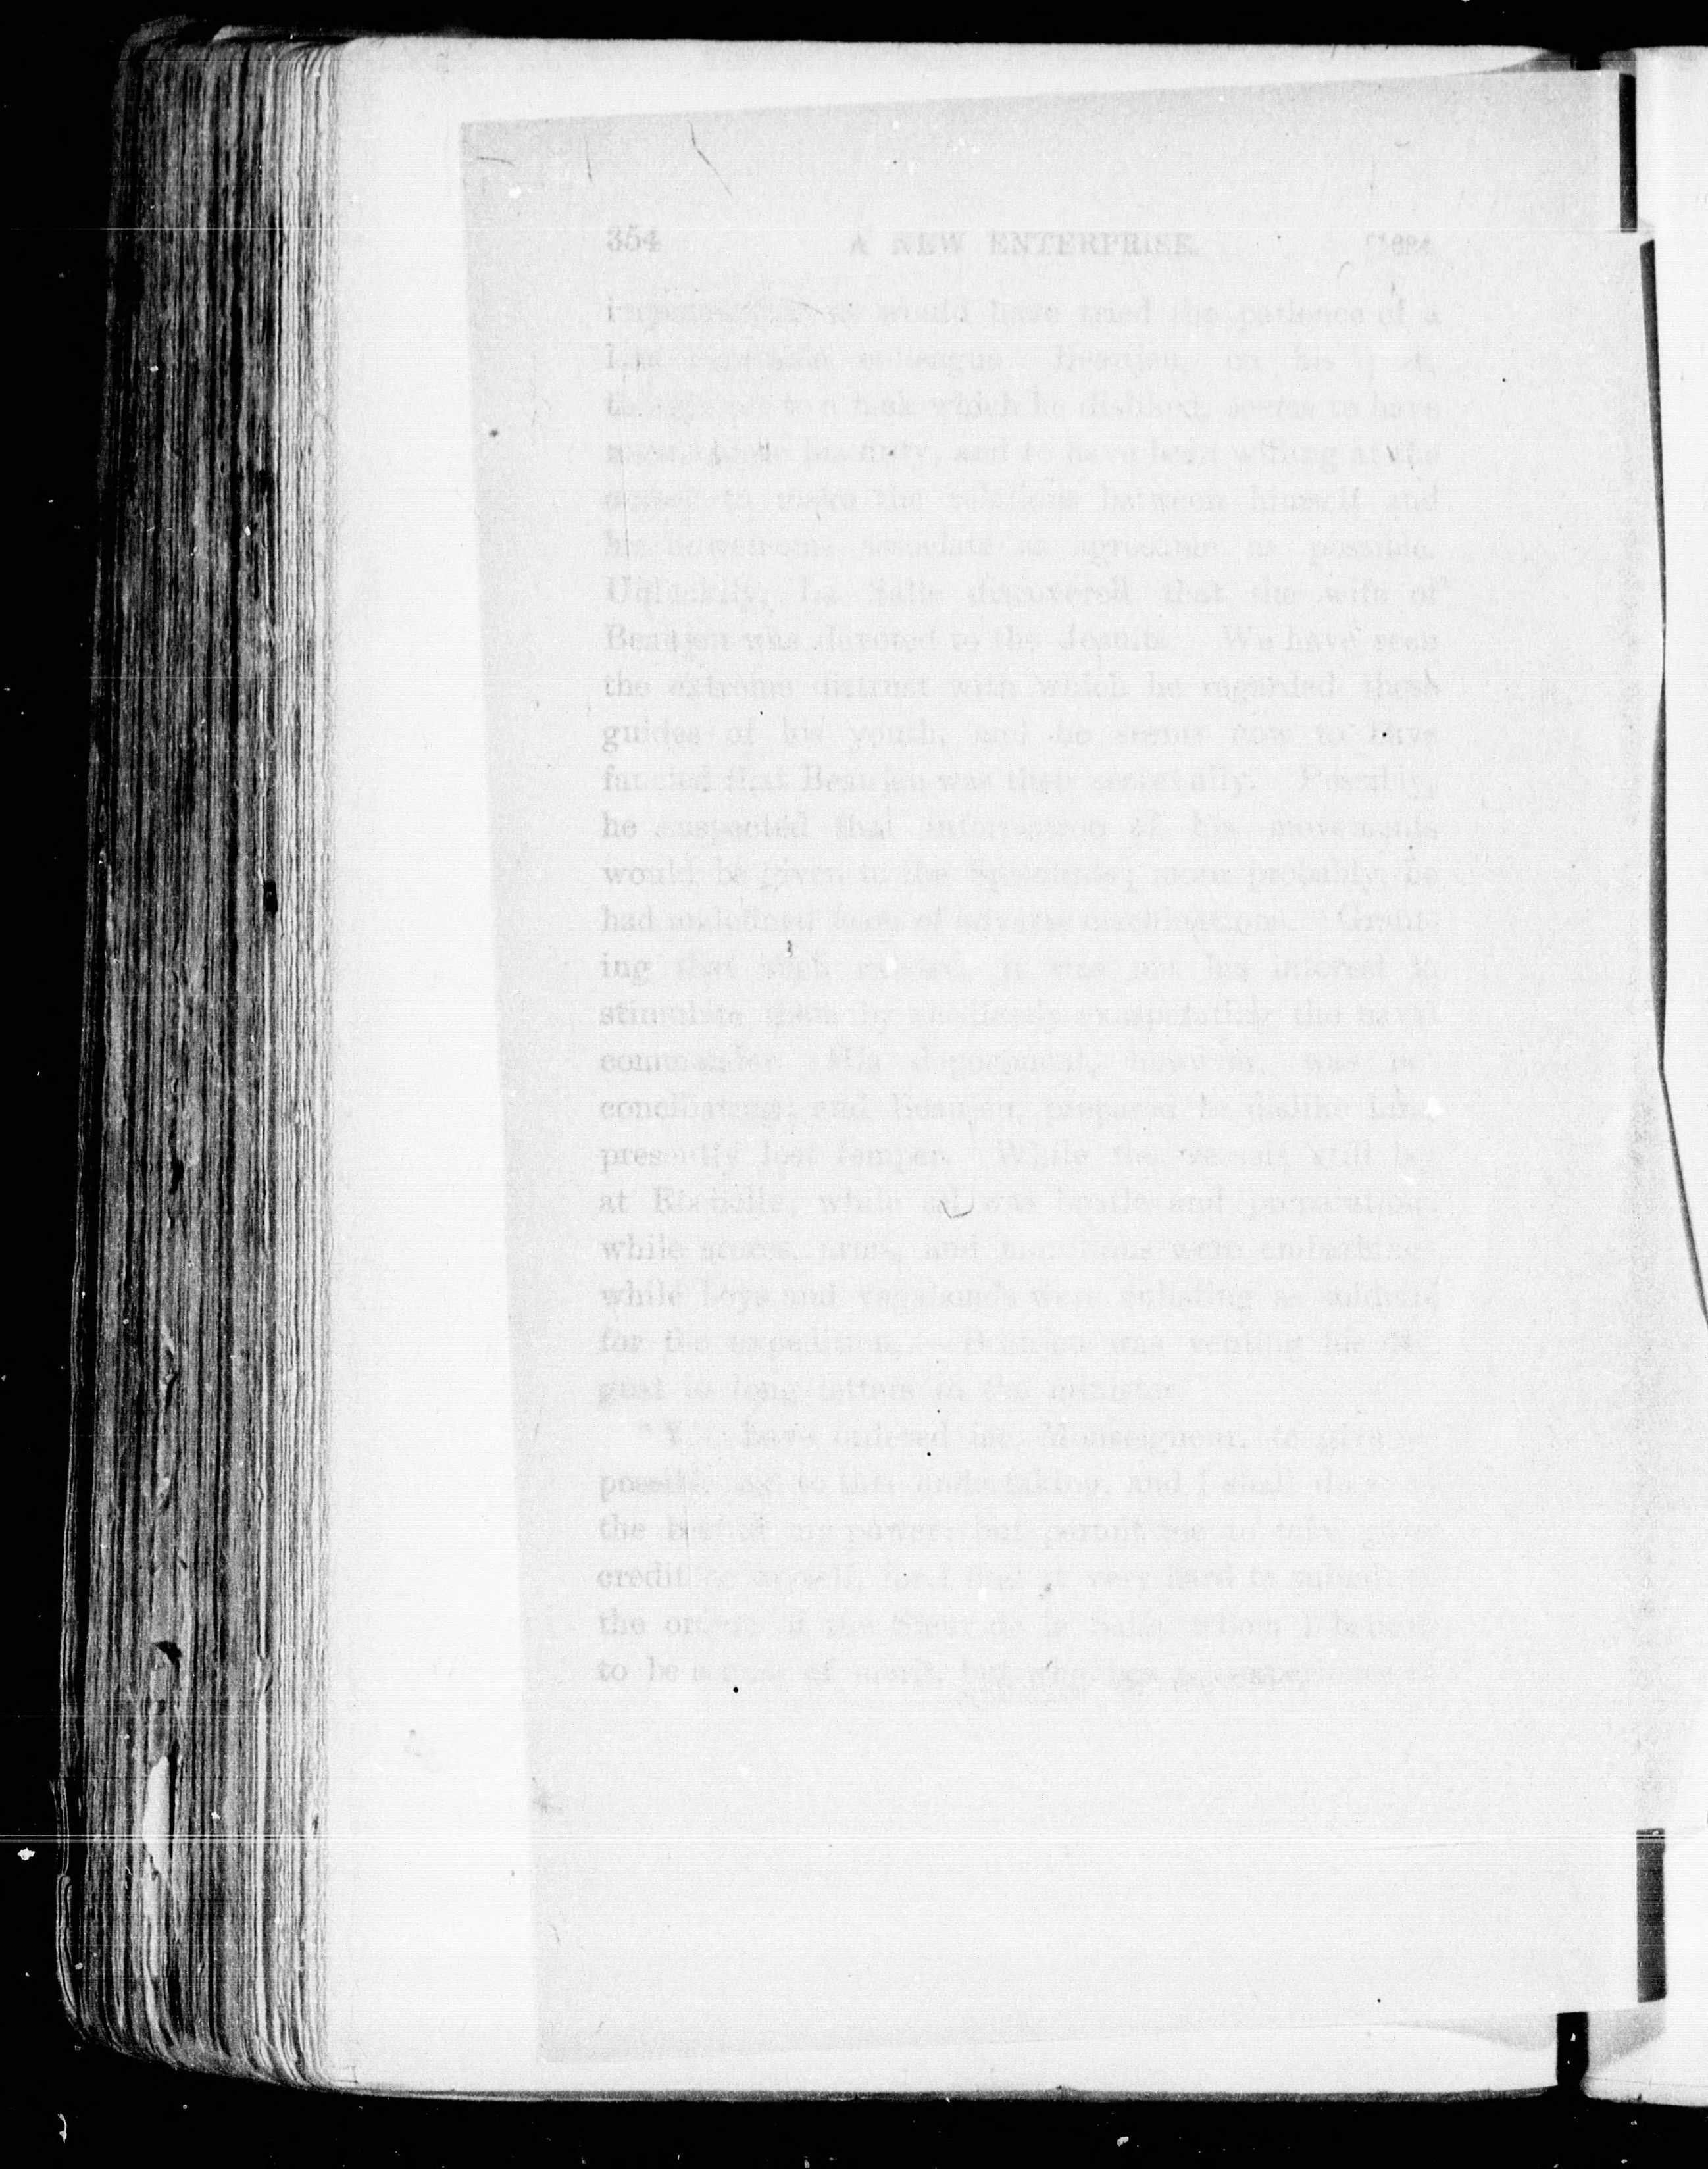 354 A NEW ENTERPRISE.
would have tried the patience of a
colleague. Beaujeu, on his part,
to a task which he disliked, seems to have
his duty, and to have been willing at the
to make the relations between himself and
his unwelcome associate as agreeable as possible.
Unluckily, La Salle discovered that the wife of
Beaujeu was devoted to the Jesuits. We have seen
the extreme distrust with which he regarded these
guides of his youth, and he seems now to have
fancied that Beaujeu was their secret ally. Possibly,
he suspected that information of his movements
would be given to the Spaniards; more probably, he
had undefined fears of adverse machinations. Grant-
ing that such existed, it was not his interest to
stimulate them by needlessly exasperating the naval
commander. His deportment, however, was not
conciliating; and Beaujeu, prepared to dislike him,
presently lost temper. While the vessels still lay
at Rochelle, while all was bustle and preparation,
while stores, arms, and munitions were embarking,
while boys and vagabonds were enlisting as soldiers
for the expedition, Beaujeu was venting his dis-
gust in long letters to the minister.
"You have ordered me, Monseigneur, to give
possible to this undertaking, and I shall do so
the best of my power; but permit me to take
credit to myself, for I find it very hard to submit
the orders of the Sieur de la Salle, whom I believe
to be a man of merit, but who has no experience